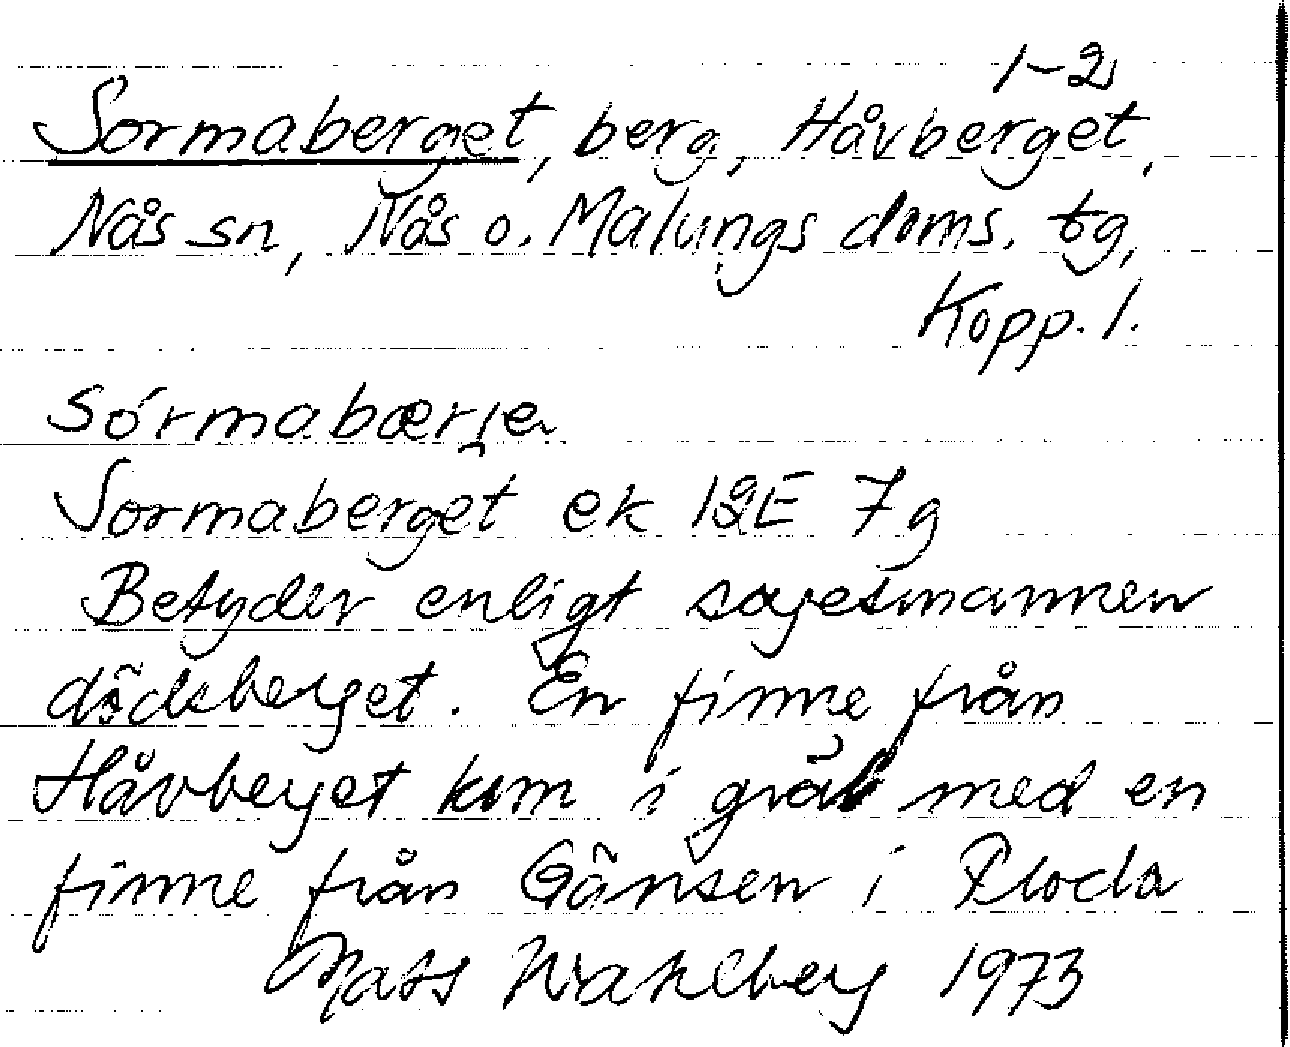 1-2
Sormaberget, berg, Håvberget,
Nås sn, Nås o. Malungs doms. tg,
Kopp. l.
sórmabærje
Sormaberget ek 12E 7g
Betyder enligt sagesmannen
dödsberget. En finne från
Håvberget kom i gräl med en
finne från Gänsen i Floda
Mats Wahlberg 1973